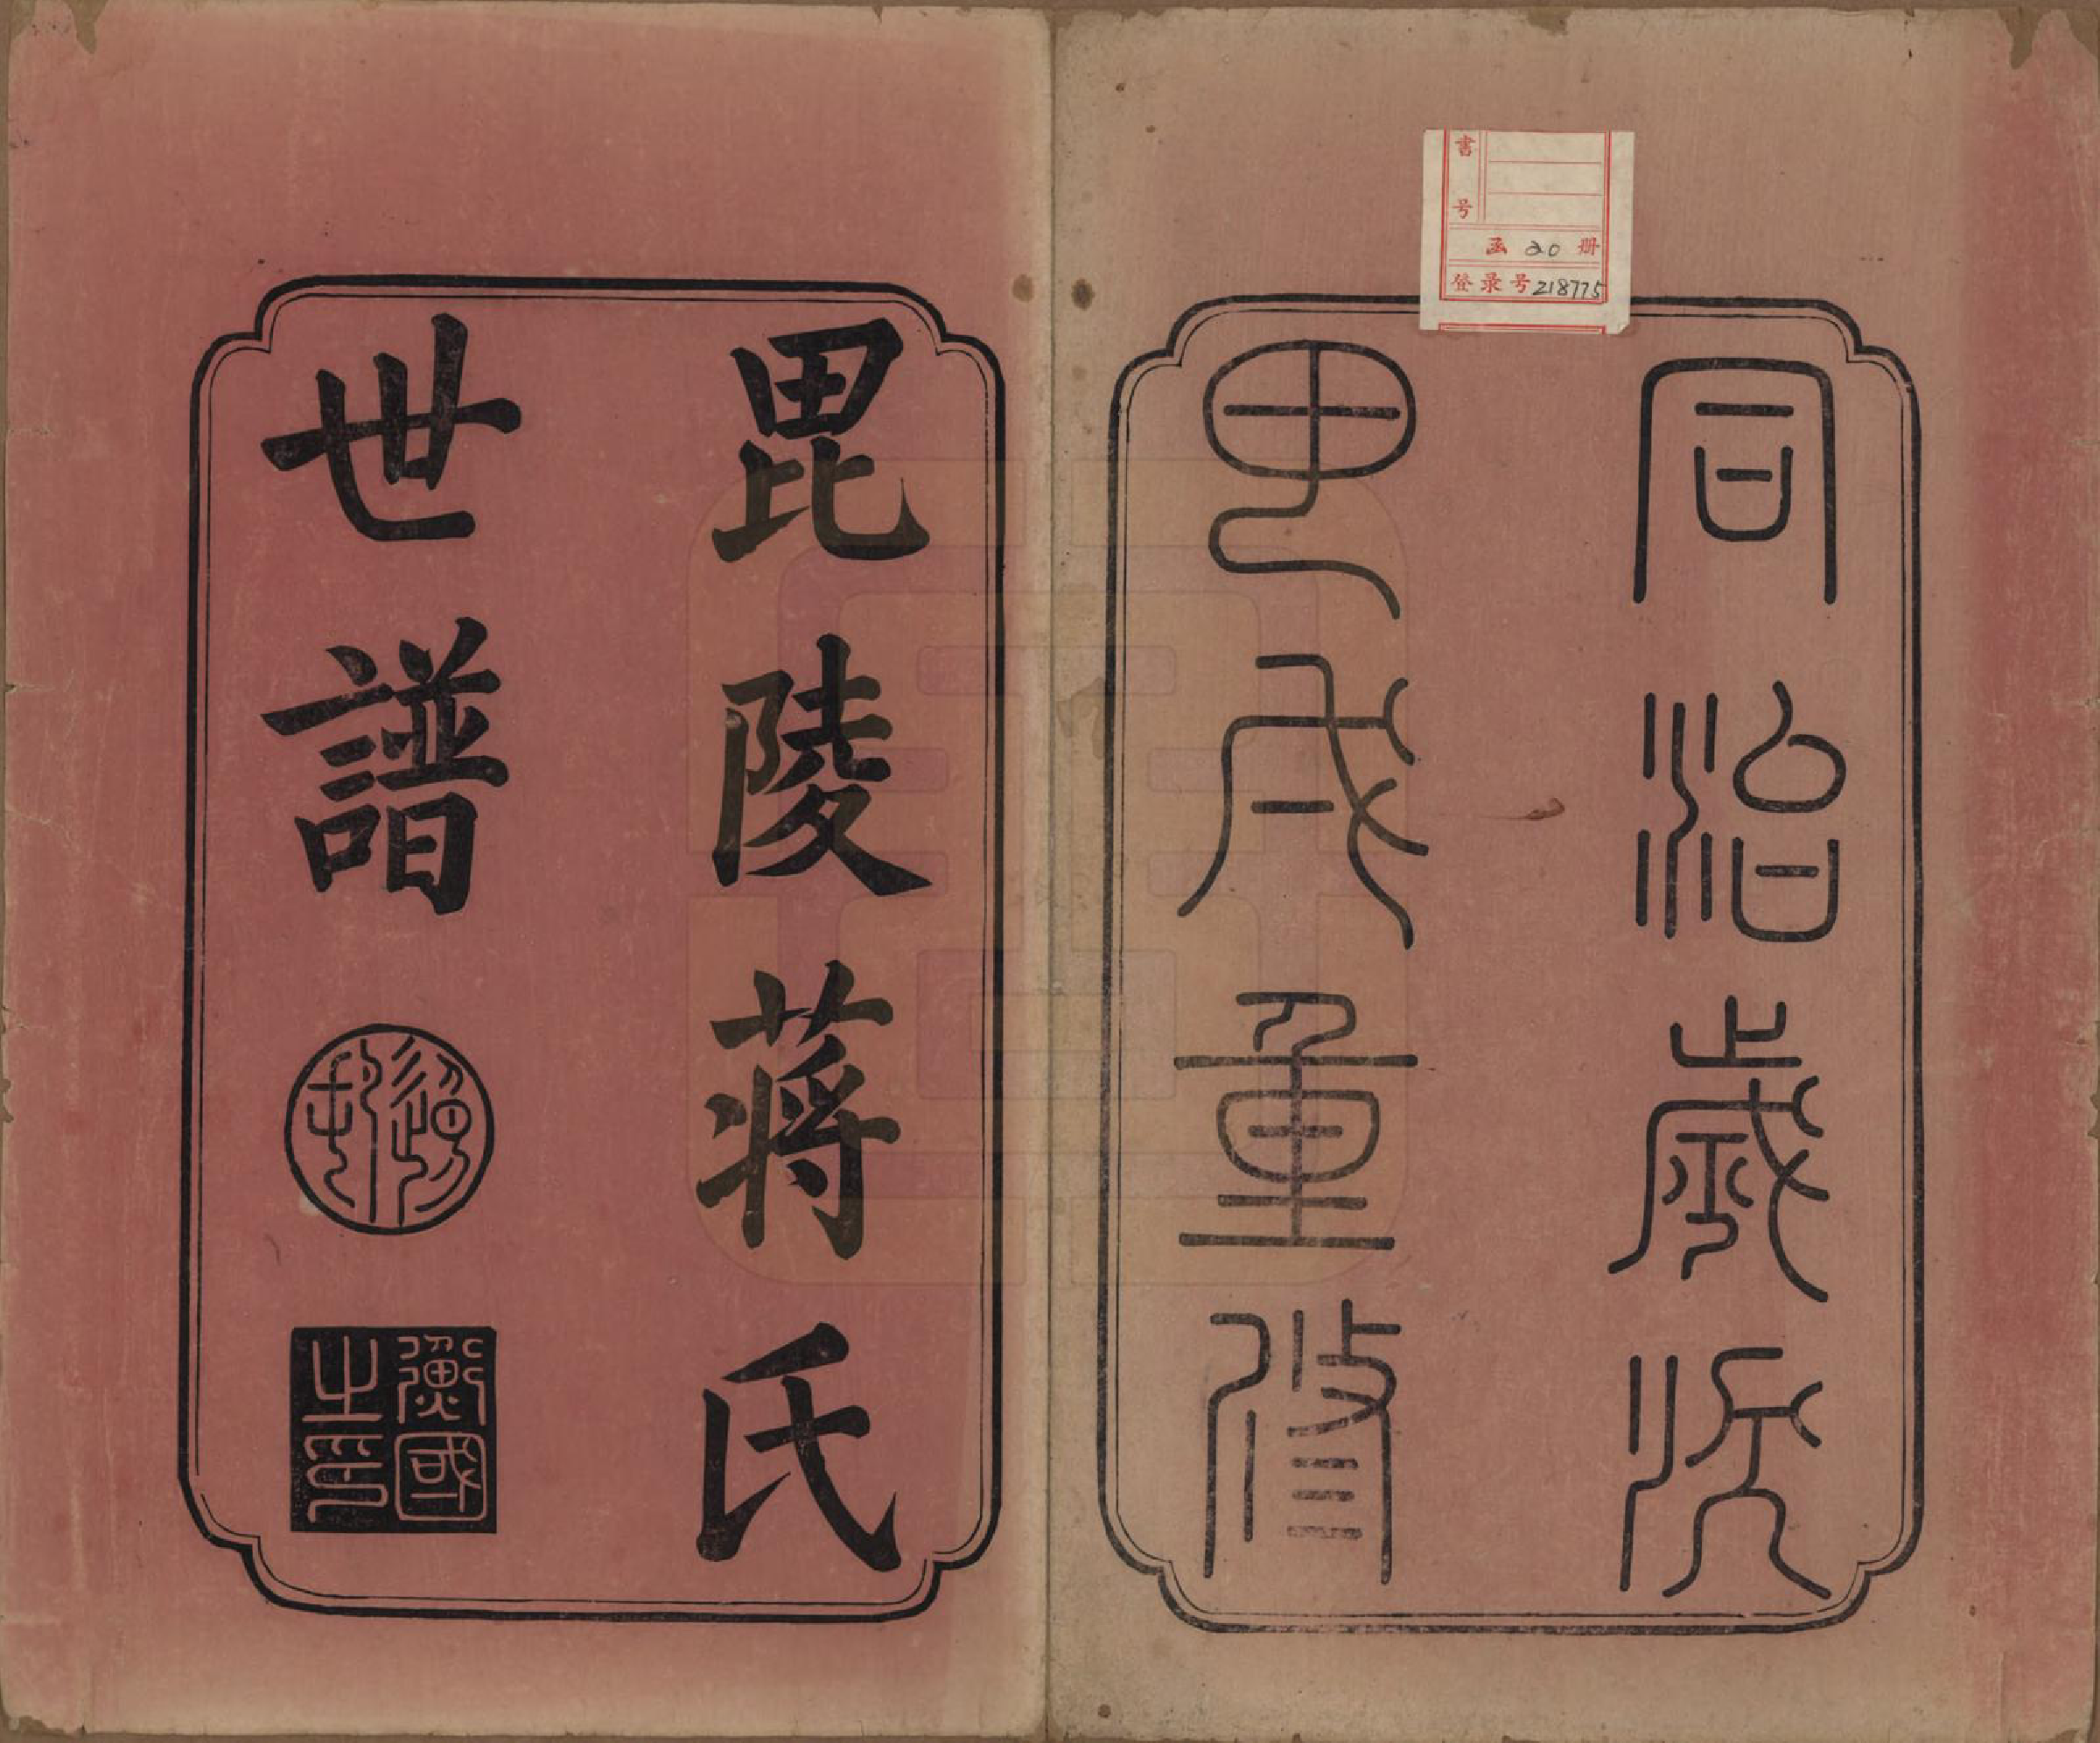 書号
函 20 册
登录号218775
同治歲次
甲戌重修
毘陵蔣氏
世譜
衡國
之印